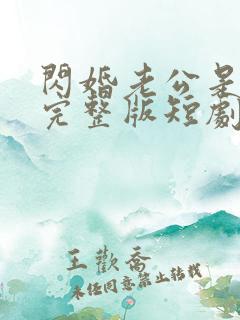 閃婚老公是
完整版短劇
王歡喬
未经同意禁止转载